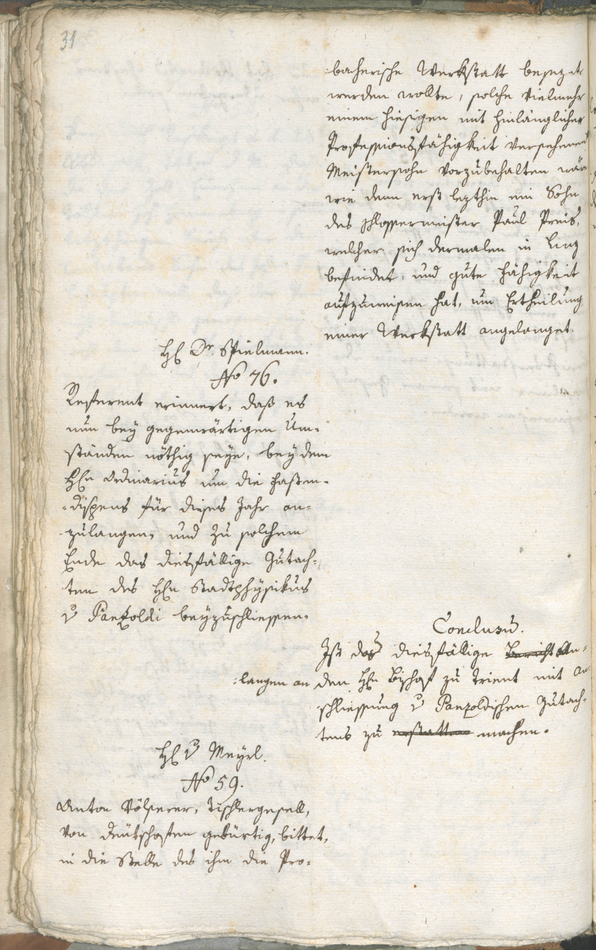 31
bacherische Werkstatt besezt
werden wollte, solche vielmehr
einem hiesigen mit hinlänglicher
Professionsfähigkeit versehenen
Meistersohn vorzubehalten wäre
wie dann erst lezthin ein Sohn
des Schlossermeister Paul Preis,
welcher sich dermalen in Linz
befindet, und gute Fähigkeit
aufzuweisen hat, um Ertheilung
einer Werkstatt angelanget.
H Dr Spielmann.
No 76.
Referent erinnert, daß es
nun bey gegenwärtigen Um-
ständen nöthig seye, bey dem
Hn Ordinarius um die Fasten-
dispens für dieses Jahr an-
zulangen, und zu solchem
Ende das diesfällige Gutach-
ten des Hn Stadtphysikus
v Panzoldi beyzuschliessen.
Conclusum.
Ist das diesfällige Bericht An-
langen an den Hn Bischof zu Trient mit An
schliessung v Panzoldischen Gutach-
tens zu erstatten machen.
H v Mayrl.
No 59.
Anton Völserer, Tischlergesell,
von Deutschofen gebürtig, bittet,
in die Stelle des ihm die Pro-